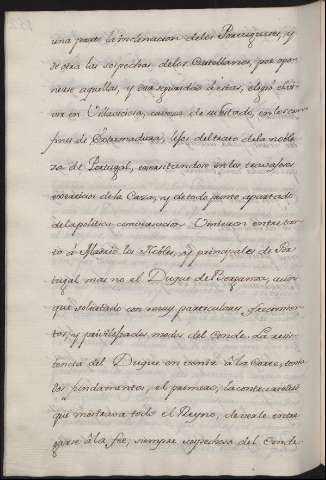 una parte la inclinacion delos Portugueses, y
de otra las sospechas delos Castellanos, por opo-
nerse aquellas, y dar seguridad à estas, eligió el vi-
vir en Villaviciosa, caveza de su Estado, en los con-
fines de Estremadura, lejos del trato dela noble-
za de Portugal, exercitandose en los
exercicios de la Caza, y de todo punto apartado
dela politica comunicacion Vinieron entre tan-
to à Madrid los Nobles, y principales de Por-
tugal mas no el Duque de Berganza, aun-
que solicitado con muy particulares,
y privilegiados modos del Conde. La resis-
tencia del Duque en venir à la Corte, tenia
dos fundamentos, el primero, la contrariedad
que mostrava todo el Reyno, de verle entre-
garse à la fee, siempre sospechosa del Conde.